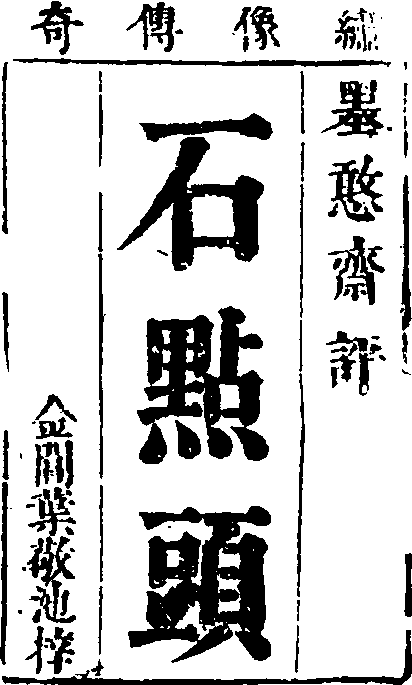 繡像傳奇
墨憨齋評
石點頭
金閶葉敬池梓